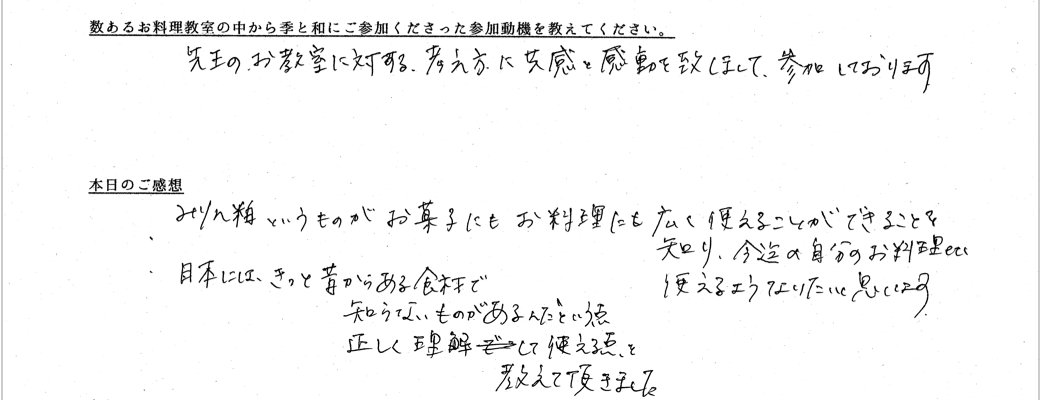 数あるお料理教室の中から季と和にご参加くださった参加動機を教えてください。
先生の、お教室に対する、考え方に共感と感動を致しまして、参加しております
本日のご感想
みりん粕というものがお菓子にもお料理にも広く使えることができることを
知り、今迄の自分のお料理etc
使えるようなりたいと思います
・日本には、きっと昔からある食材で
知らないものがあるんだという点
正しく理解して使える点、を
教えて頂きました